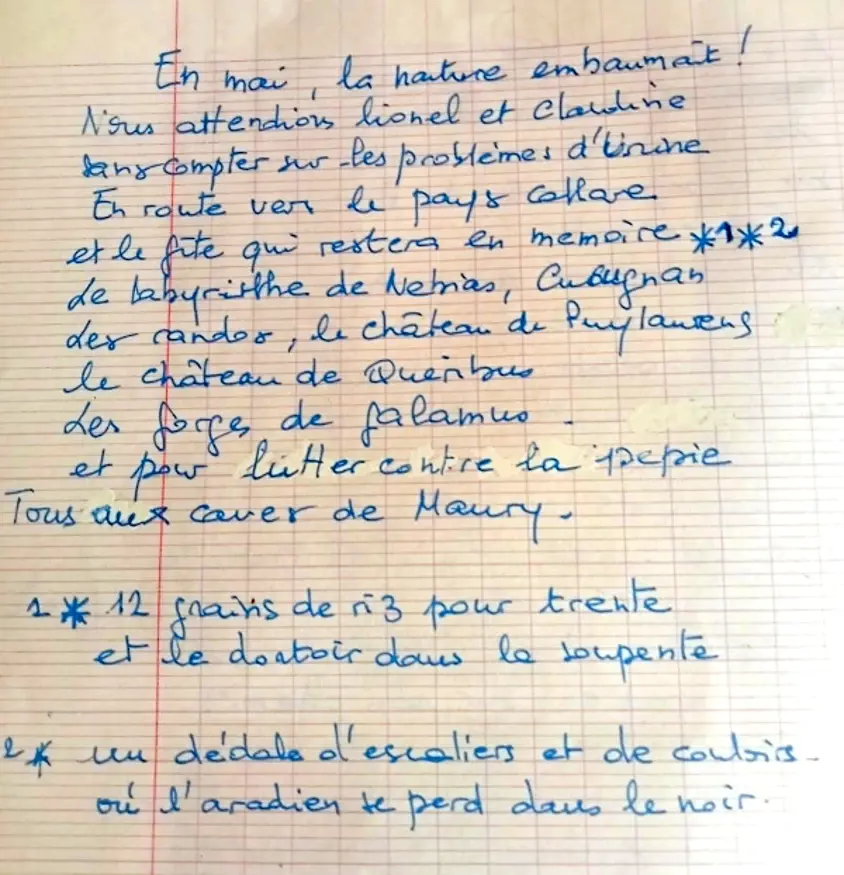 En mai, la nature embaumait !
Nous attendions lionel et Claudine
sans compter sur les problèmes d'urine
En route vers le pays cathare
et le gîte qui restera en memoire *1*2
Le labyrinthe de Nebias, Cucugnan
des randos, le château de Puylaurens
le château de Queribus
Les gorges de galamus -
et pour lutter contre la pepie
Tous aux caves de Maury.
1 * 12 grains de riz pour trente
et le dortoir dans la soupente
2 * un dédale d'escaliers et de couloirs -
où l'aradien se perd dans le noir.